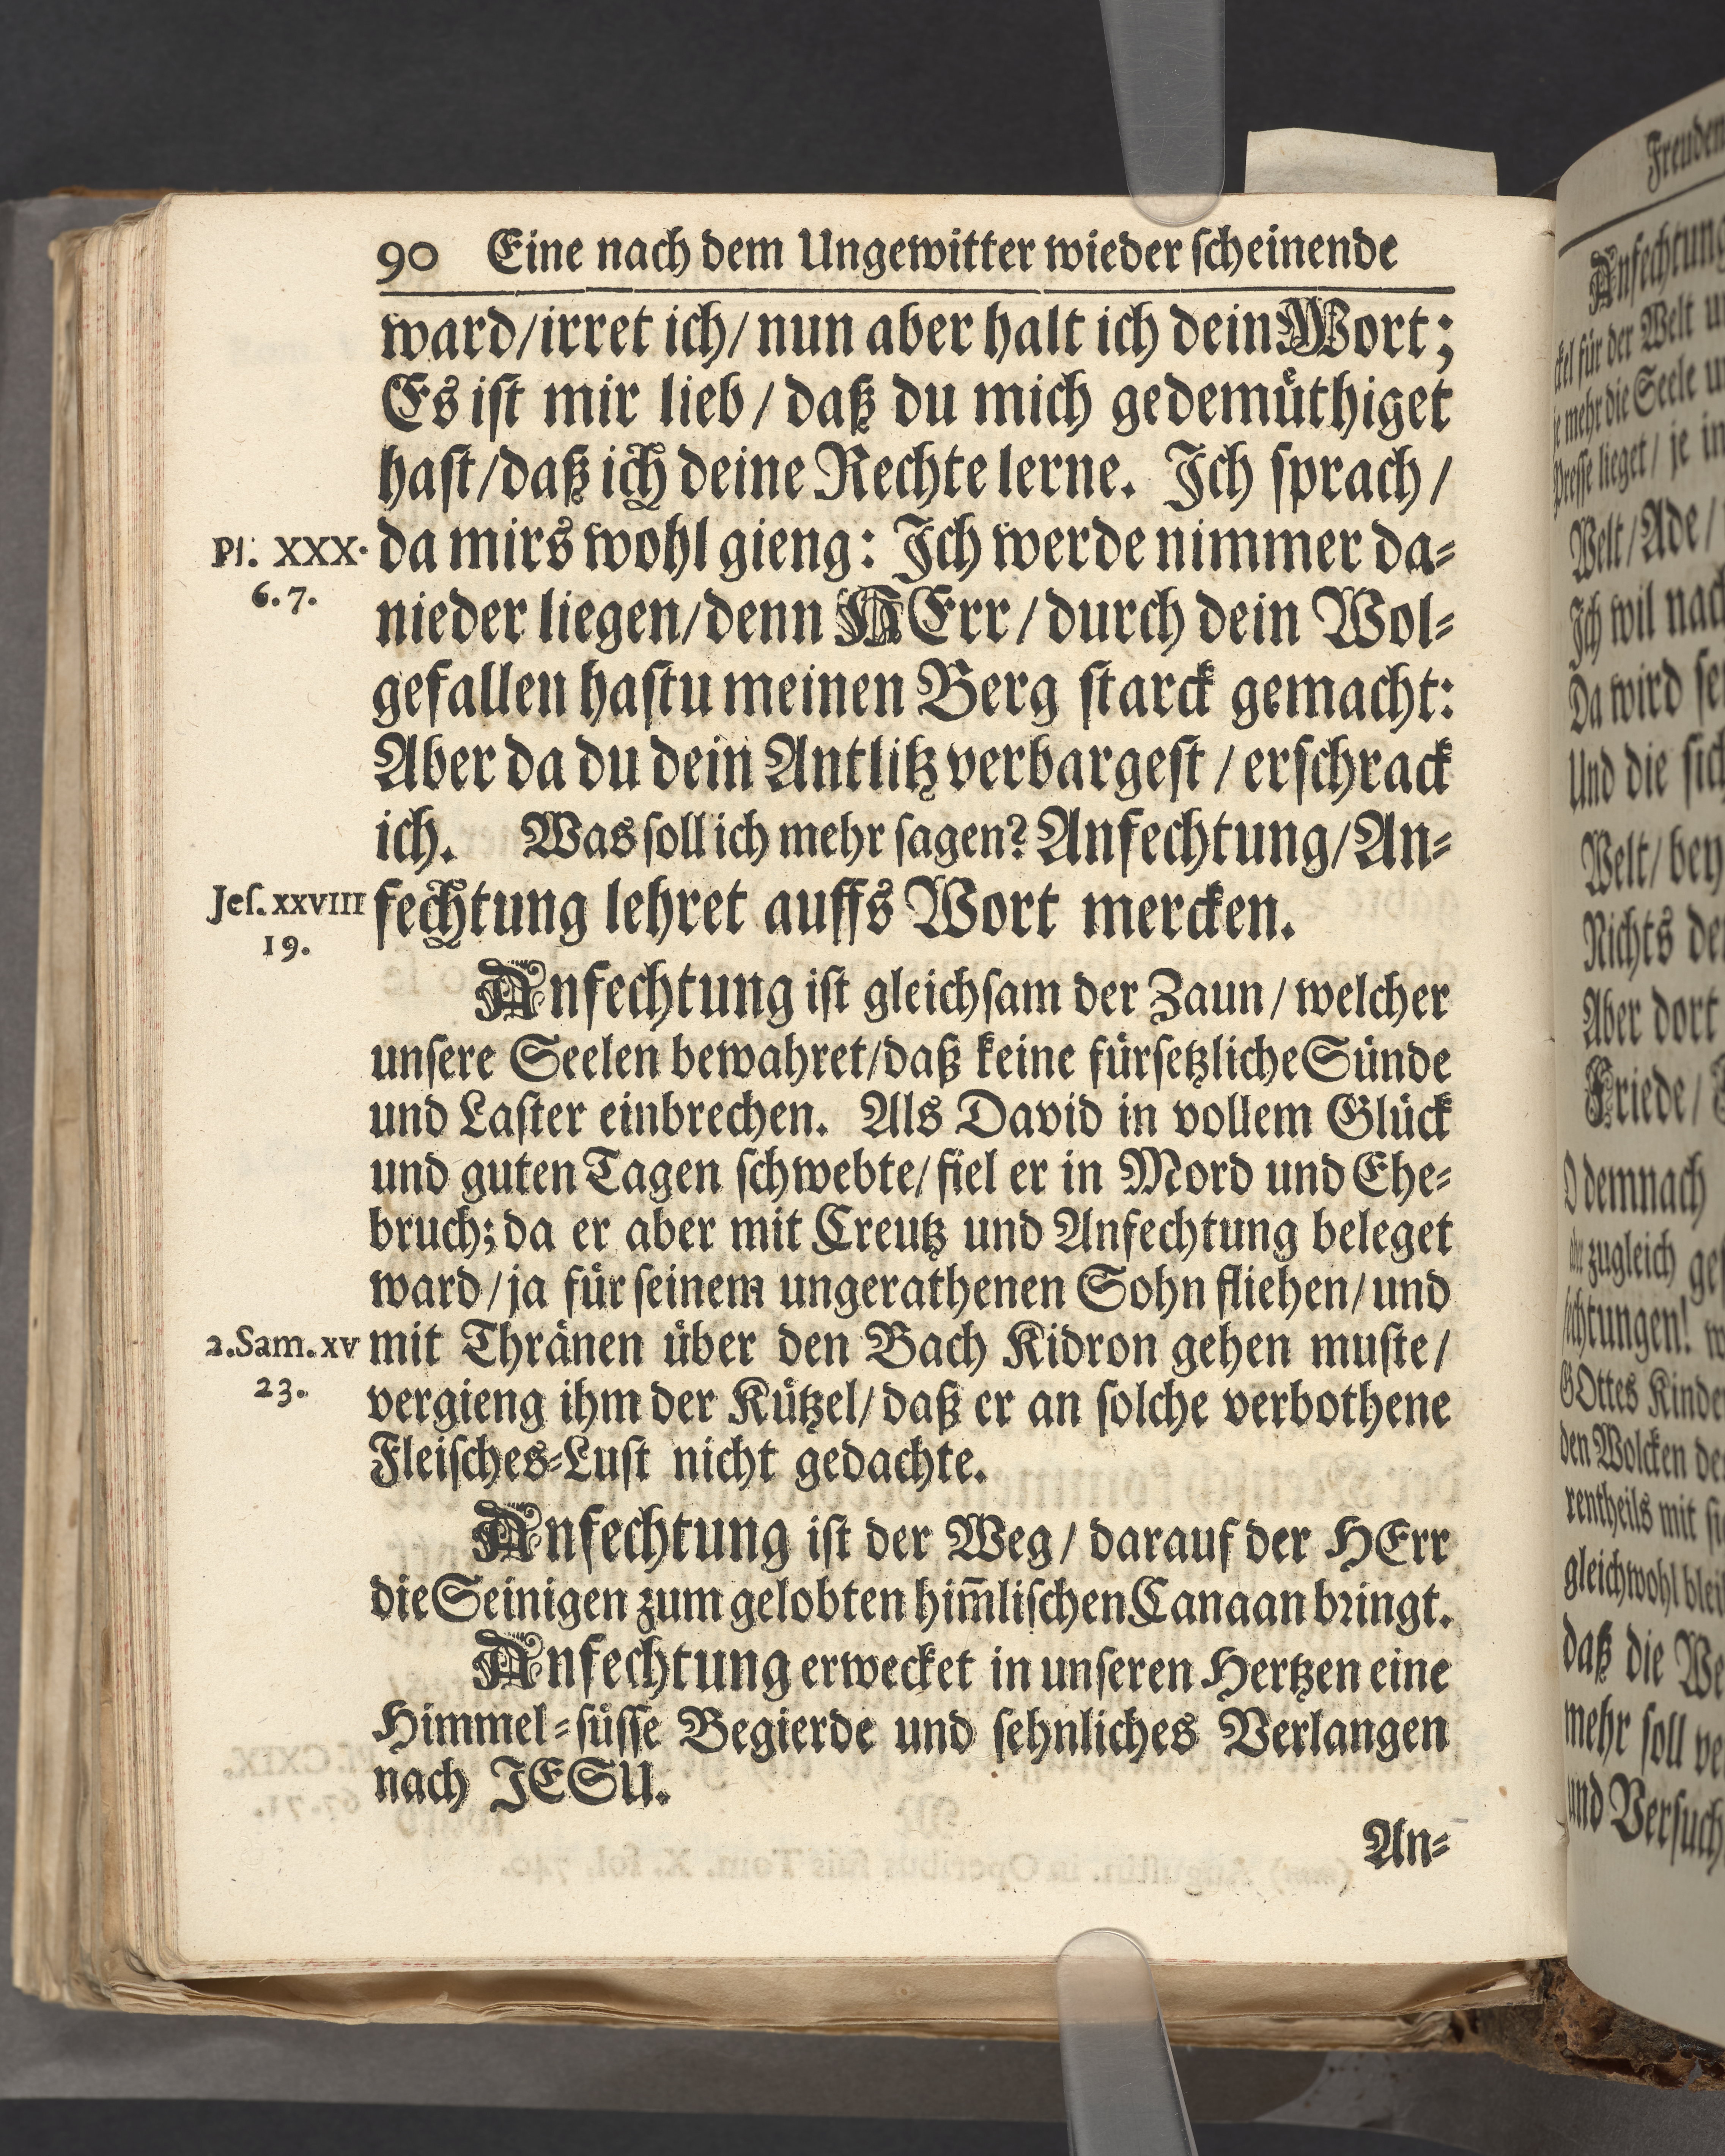 90 Eine nach dem Ungewitter wieder ſcheinende
ward/irret ich/nun aber halt ich dein Wort;
Es iſt mir lieb/daß du mich gedemuͤthiget
haſt/daß ich deine Rechte lerne. Ich ſprach/
da mirs wohl gieng: Ich werde nimmer da⸗
Pſ. XXX.
6.7.
nieder liegen/denn HErr/durch dein Wol⸗
gefallen haſtu meinen Berg ſtarck gemacht:
Aber da du dein Antlitz verbargeſt/erſchrack
ich. Was ſoll ich mehr ſagen? Anfechtung/An⸗
fechtung lehret auffs Wort mercken.
Jeſ. XXVIII
19.
Anfechtung iſt gleichſam der Zaun/welcher
unſere Seelen bewahret/daß keine fuͤrſetzliche Suͤnde
und Laſter einbrechen. Als David in vollem Gluͤck
und guten Tagen ſchwebte/fiel er in Mord und Ehe⸗
bruch; da er aber mit Creutz und Anfechtung beleget
ward/ja fuͤr ſeinem ungerathenen Sohn fliehen/und
mit Thraͤnen uͤber den Bach Kidron gehen muſte/
2.Sam. XV
23.
vergieng ihm der Kuͤtzel/daß er an ſolche verbothene
Fleiſches⸗Luſt nicht gedachte.
Anfechtung iſt der Weg/darauf der HErr
die Seinigen zum gelobten him̃liſchen Canaan bringt.
Anfechtung erwecket in unſeren Hertzen eine
Himmel⸗ſuͤſſe Begierde und ſehnliches Verlangen
nach JESU.
An⸗
Freuden
Anfechtung
für der Welt
mehr die Seele
lieget/je in
Welt/Ade/
Ich wil nach
Da wird
Und die
Welt/bey
Nichts
Aber dort
Friede/
demnach
zugleich
GOttes Kinder
den Wolcken
rentheils mit
gleichwohl
daß die
mehr ſoll
und